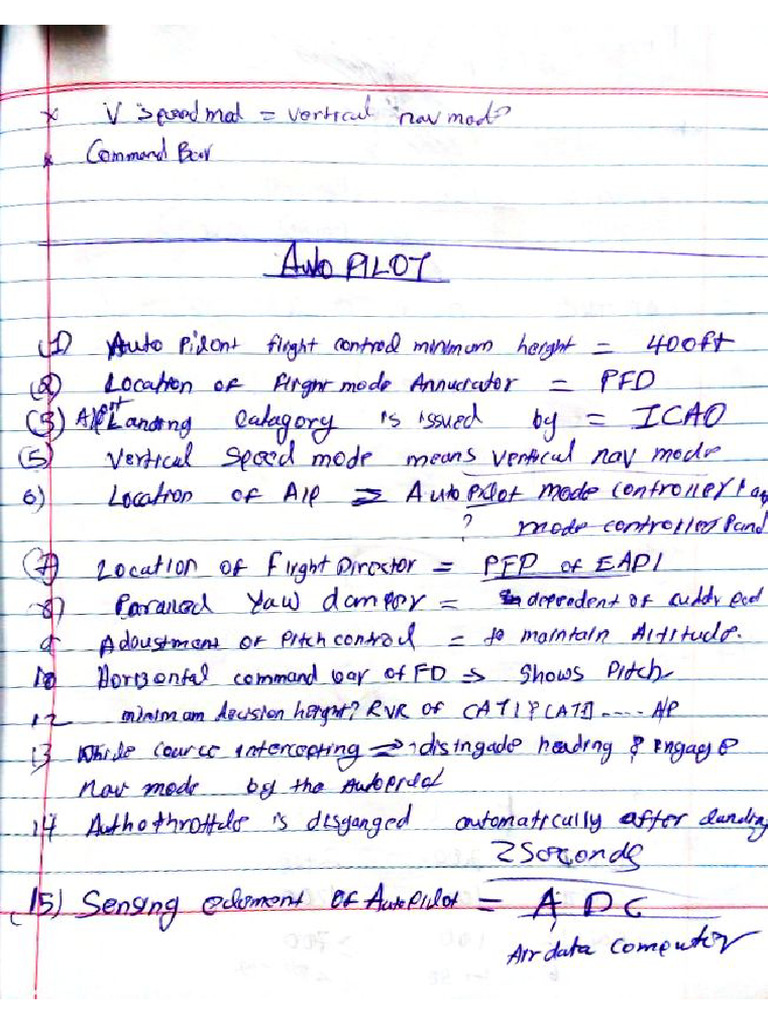 x V speed mod = vertical nav mode
x Command Bar
Auto PILOT
(1) Auto Pilont flight control minimum height = 400ft
(2) Location of flight mode Annucrator = PFD
(3) Airport Landing Catagory is issued by = ICAO
(5) Vertical Speed mode means vertical nav mode
6) Location of A/P => Autopilot mode controller / ap
? mode controller Pand
(7) Location of Flight Director = PFP of EADI
8) Paralled Yaw damper = dependent of
9 Adoustment of Pitch control = to maintain Altitude.
10 Horizontal command bar of FD => Shows Pitch
12 minimum decision height? RVR of CAT1 & CAT .... A/P
13 While cource intercepting => disingade heading & Engage
Nav mode by the Autopilot
14 Authothrottle is disganged automatically after landing
2 Seconds
15) Sensing element of AutoPilot = ADC
Air data computor